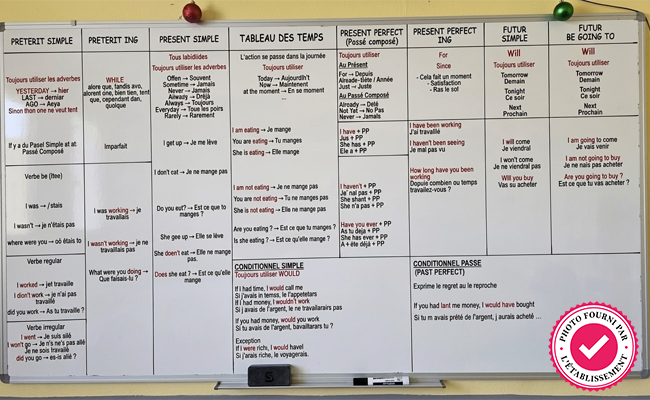 PRETERIT SIMPLE
Toujours utiliser les adverbes
YESTERDAY → hier
LAST → derniar
AGO → Aeya
Sinon thon one ne veut tent
If y a du Pasel Simple at at
Passé Composé
Verbe be (îtee)
I was → /stais
I wasn't → je n'étais pas
where were you → oò étais to
Verbe regular
I worked → jet travaille
I didn't work → je n'ai pas
travaillé
did you work → As tu travaille ?
Verbe irregular
I went → Je suis silé
I won't go → Je n's ne's pas allé
Je ne sois travailé
did you go → es-is alié ?
PRETERIT ING
WHILE
alore que, tandis avo,
alorent one, bien tien, tent
que, cependant dan,
quoique
Imparfait
I was working → je
travallais
I wasn't working → je ne
travaillais pas
What were you doing →
Que faisais-lu ?
PRESENT SIMPLE
Tous labidiides
Toujours utiliser les adverbes
Offen → Souvent
Sometime → Jamais
Never → Jamais
Aiways → Dréjà
Always → Toujours
Everyday → Tous les poirs
Rarely → Rarement
I get up → Je me lève
I don't cat → Je mange pas
Do you eut? → Est ce que to
manges ?
She gee up → Elle se lève
She doesn't eat → Elle ne mange
pas.
Does she eat ? → Est ce qu'elle
mange
TABLEAU DES TEMPS
L'action se passe dans la journée
Toujours utiliser
Today → Aujourdlh't
Now → Maintenent
at the moment → En se moment
...
I am eating → Je mange
You are eating → Tu manges
She is eating → Elle mange
I am not eating → Je ne mange pas
You are not eating → Tu ne manges pas
She is not eating → Elle ne manges pas
Are you eating ? → Est ce que tu manges ?
Is she eating ? → Est ce qu'elle mange ?
PRESENT PERFECT
(Passé composé)
Toujours utiliser
Au Présent
For → Depuis
Already-tlète / Année
Just → Juste
Au Passé Composé
Already → Deté
Not Yet → No Pas
Never → Jamais
I have + PP
Jus + PP
She has + PP
Ele a + PP
I haven't + PP
Je' nal pas + PP
She shant + PP
She n'a pas + PP
Have you ever + PP
As tu deja + PP
She has ever + PP
A + éte déjà + PP
PRESENT PERFECT
ING
For
Since
- Cela fait un moment
- Satisfaction
- Ras le sol
I have been working
J'ai travaillé
I haven't been seeing
Je mal pas vu
How long have you been
working
Depuis combien ou temps
travailez-vous ?
FUTUR
SIMPLE
Will
Toujours utiliser
Tomorrow
Demain
Tonight
Ce soir
Next
Prochain
I will come
Je viendral
I won't come
Je ne viendral pas
Will you buy
Vas su acheter
FUTUR
BE GOING TO
Will
Toujours utiliser
Tomorrow
Demain
Tonight
Ce soir
Next
Prochain
I am going to come
Je vais venir
I am not going to buy
Je ne nais pas acheter
Are you going to buy ?
Est ce que tu vas acheter ?
CONDITIONNEL SIMPLE
Toujours utiliser WOULD
If I had time, I would call me
Si j'avais in temss, le l'appetetars
If I had money, I wouldn't work
Si j avais de l'argent, le ne travailarairs pas
If you had money, would you work
Si tu avais de l'argent, bavailtarars tu ?
Exception
If I were richi, I would havel
Si j'arais riche, le voyagerais.
CONDITIONNEL PASSE
(PAST PERFECT)
Exprime le regrat au le reproche
If you had lant me money, I would have bought
Si tu m avais prété de l'argent, j aurais acheté ...
PHOTO FOURNI PAR
L'ÉTABLISSEMENT